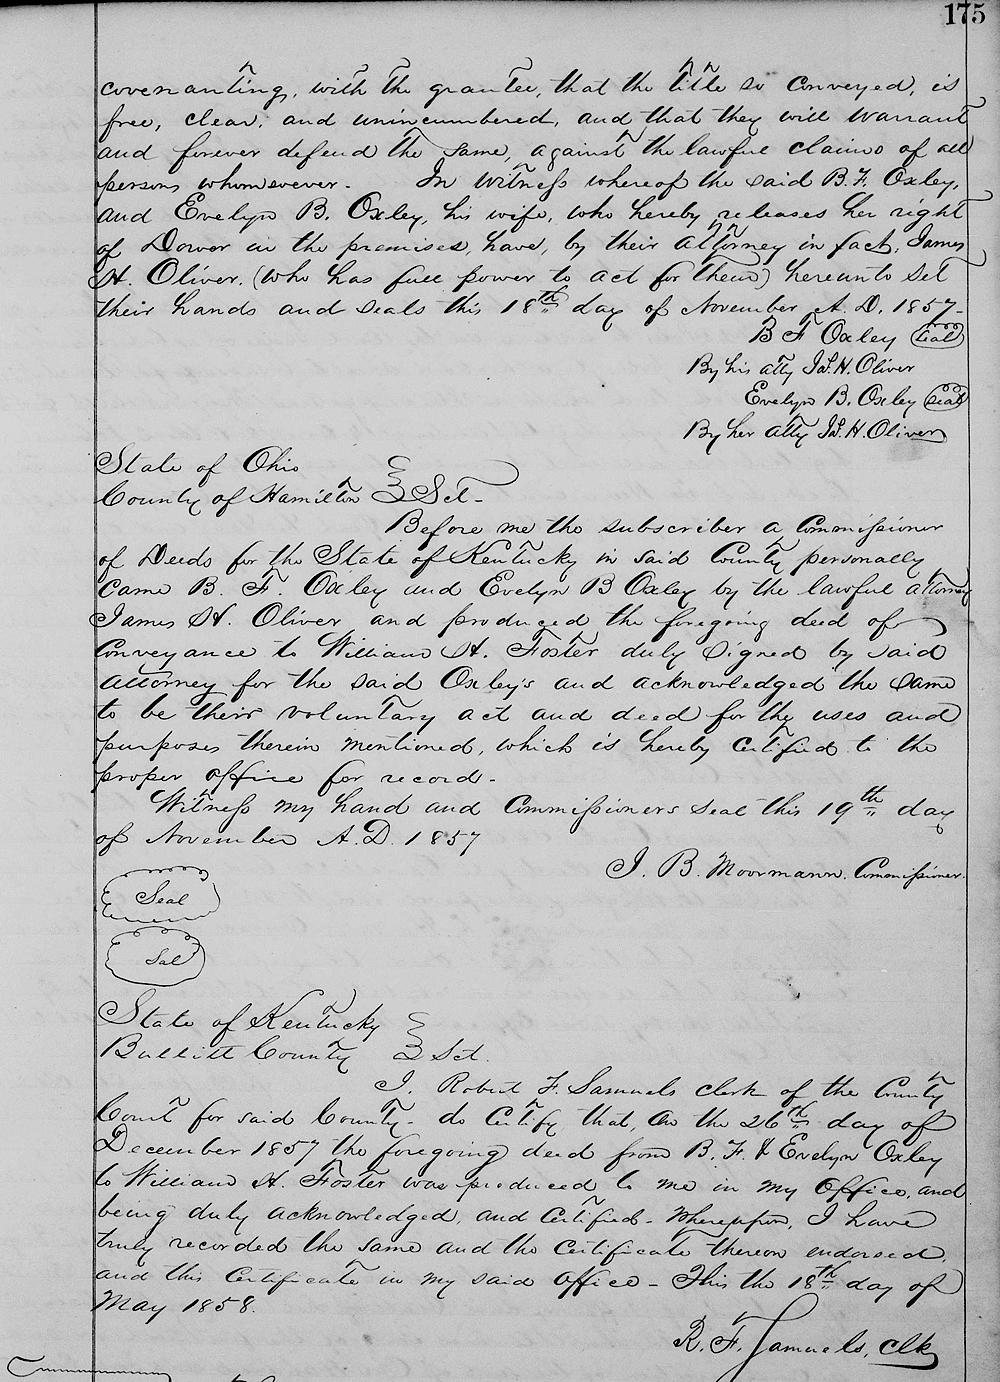 175
covenanting, with the grantee, that the title so conveyed, is
free, clear, and unincumbered, and that they will warrant
and forever defend the same, against the lawful claims of all
persons whomsoever. In Witness whereof the said B. F. Oxley,
and Evelyn B. Oxley, his wife, who hereby releases her right
of Dower in the premises, have, by their attorney in fact, James
H. Oliver, (who has full power to act for them) hereunto set
their hands and seals this 18th day of November A. D. 1857-
B F Oxley Seal
By his atty Js. H. Oliver
Evelyn B. Oxley Seal
By her atty Js. H. Oliver
State of Ohio
County of Hamilton } Sct-
Before me the subscriber a Commissioner
of Deeds for the State of Kentucky in said County personally
came B. F. Oxley and Evelyn B Oxley by the lawful attorney
James H. Oliver and produced the foregoing deed of
Conveyance to William H. Foster duly signed by said
attorney for the said Oxley's and acknowledged the same
to be their voluntary act and deed for the uses and
purposes therein mentioned, which is hereby certified to the
proper office for record.
Witness my hand and Commissioners seal this 19th day
of November A.D. 1857
J. B. Moormann. Commissioner.
Seal
Seal
State of Kentucky
Bullitt County } Sct.
I. Robert F. Samuels clerk of the County
Court for said County- do Certify that, on the 26th day of
December 1857 the foregoing deed from B. F. & Evelyn Oxley
to William H. Foster was produced to me in my Office, and
being duly acknowledged, and certified- Whereupon, I have
truly recorded the same and the certificate thereon endorsed,
and this Certificate in my said office- This the 18th day of
May 1858.
R. F. Samuels, Clk